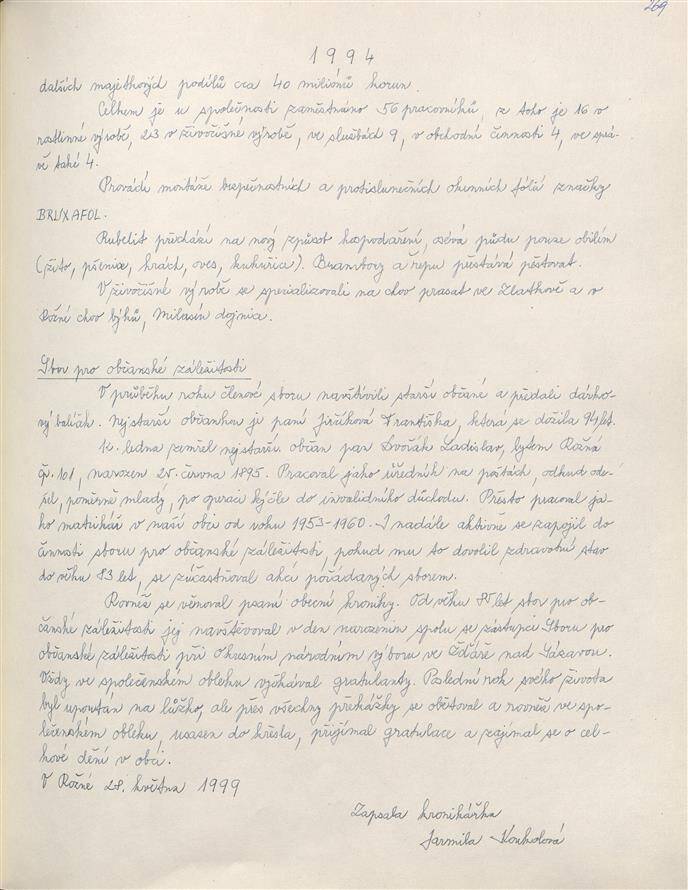 269
1994
dalších majetkových podílů cca 40 miliónů korun.
Celkem je u společnosti zaměstnáno 56 pracovníků, z toho je 16 v
rostlinné výrobě, 23 v živočišné výrobě, ve službách 9, v obchodní činnosti 4, ve sprá-
vě také 4.
Provádí montáže bezpečnostních a protislunečních okenních fólií značky
BRUXAFOL.
Rubelit přechází na nový způsob hospodaření, osévá půdu pouze obilím
(žito, pšenice, hrách, oves, kukuřice). Brambory a řepu přestává pěstovat.
V živočišné výrobě se specializovali na chov prasat ve Zlatkově a v
Rožné chov býků, Milasín dojnice.
Sbor pro občanské záležitosti
V průběhu roku členové sboru navštívili starší občané a předali dárko-
vý balíček. Nejstarší občankou je paní Jiříková Františka, která se dožila 94 let.
12. ledna zemřel nejstarší občan pan Dvořák Ladislav, bytem Rožná
č. 101, narozen 25. června 1895. Pracoval jako úředník na poštách, odkud ode-
šel, poměrně mladý, po operaci kýčle do invalidního důchodu. Přesto pracoval ja-
ko matrikář v naší obci od roku 1953-1960. I nadále aktivně se zapojil do
činnosti sboru pro občanské záležitosti, pokud mu to dovolil zdravotní stav
do věku 83 let, se zúčastňoval akcí pořádaných sborem.
Rovněž se věnoval psaní obecní kroniky. Od věku 85 let sbor pro ob-
čanské záležitosti jej navštěvoval v den narozenin spolu se zástupci Sboru pro
občanské záležitosti při Okresním národním výboru ve Žďáře nad Sázavou.
Vždy ve společenském obleku vyčkával gratulanty. Poslední rok svého života
byl upoután na lůžko, ale přes všechny překážky se obětoval a rovněž ve spo-
lečenském obleku, usazen do křesla, přijímal gratulace a zajímal se o cel-
kové dění v obci.
V Rožné 28. května 1999
Zapsala kronikářka
Jarmila Koukolová